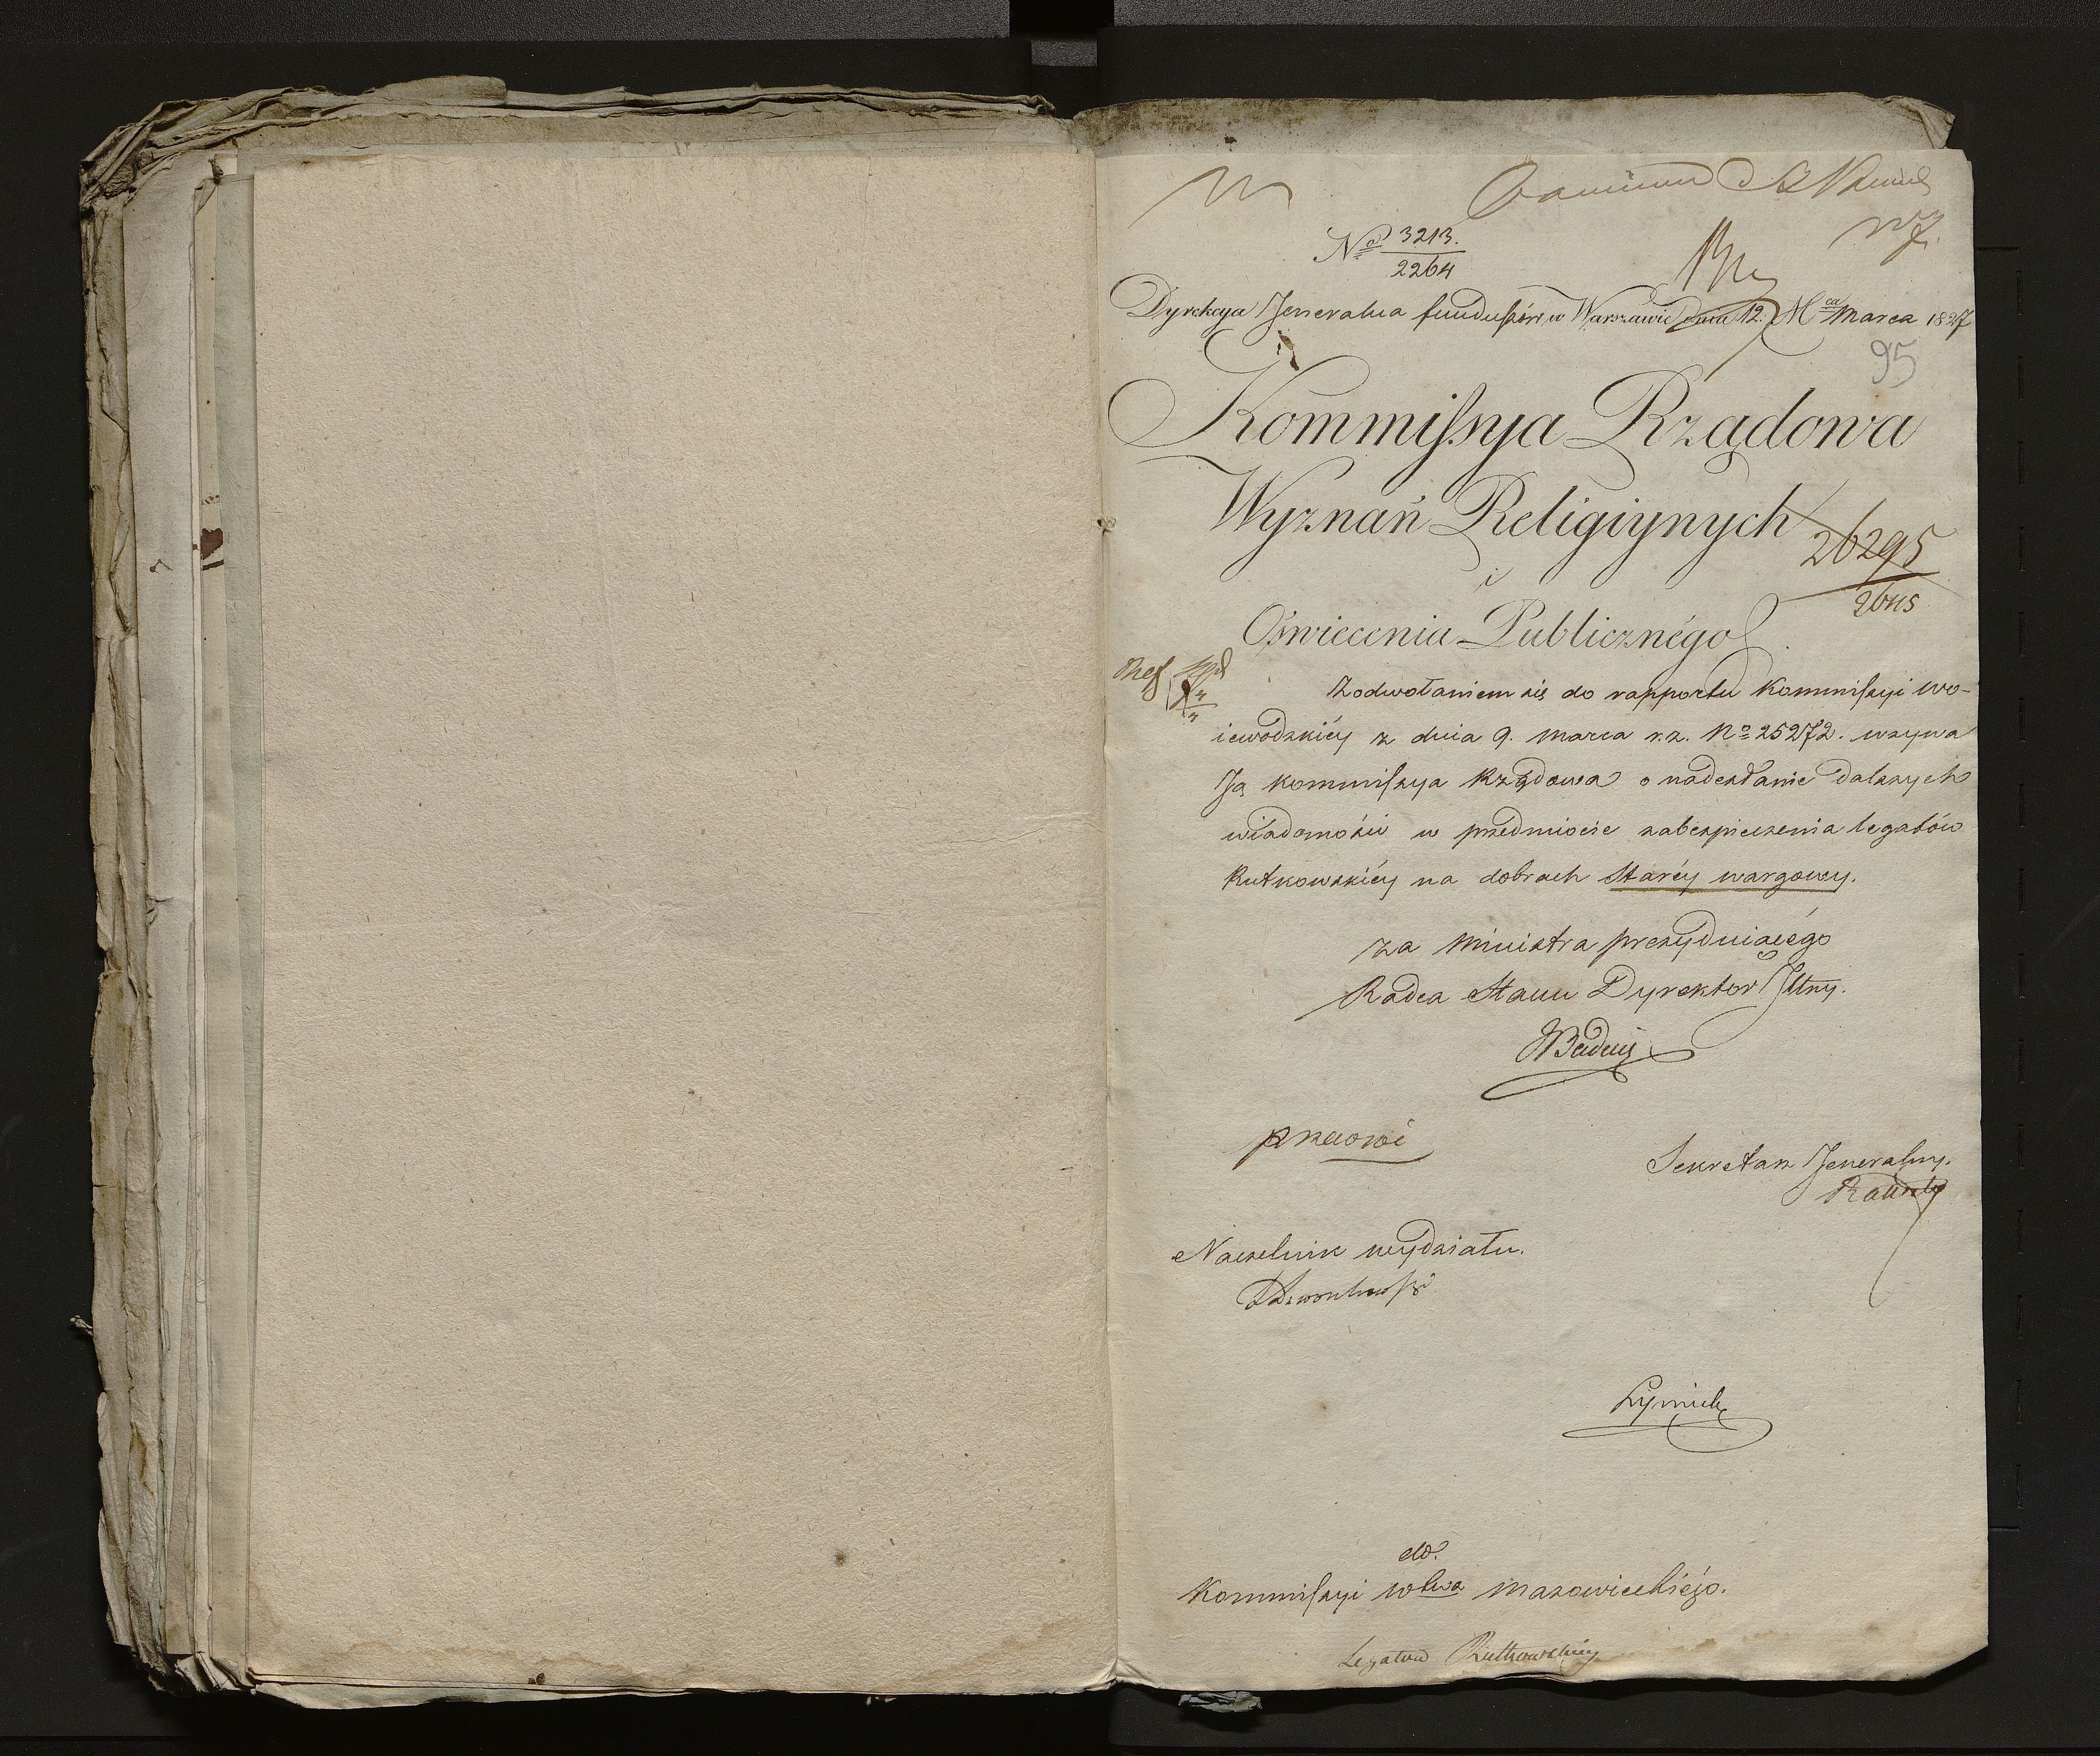 No 3213.
2264
Dyrekcya Jeneralna funduszów w Warszawie dnia 12. Mca Marca 1827
95
Kommissya Rządowa
Wyznań Religiynych
i
26295
2645
Oświecenia Publicznégo
Z odwołaniem się do rapportu Kommissyi Wo-
iewodzkiéy z dnia 9. marca r.z. No 25272. wzywa
Ją Kommissya Rządowa o nadesłanie dalszych
wiadomości w przedmiocie zabezpieczenia legatów
Rutkowskiéy na dobrach Staréy wargowy.
za Ministra prezyduiącégo
Radca Stanu Dyrektor Jlny.
Sekretarz Jeneralny.
Naczelnik wydziału.
do.
Kommissyi wtwa mazowieckiégo.
Legatów Rutkowskiéy